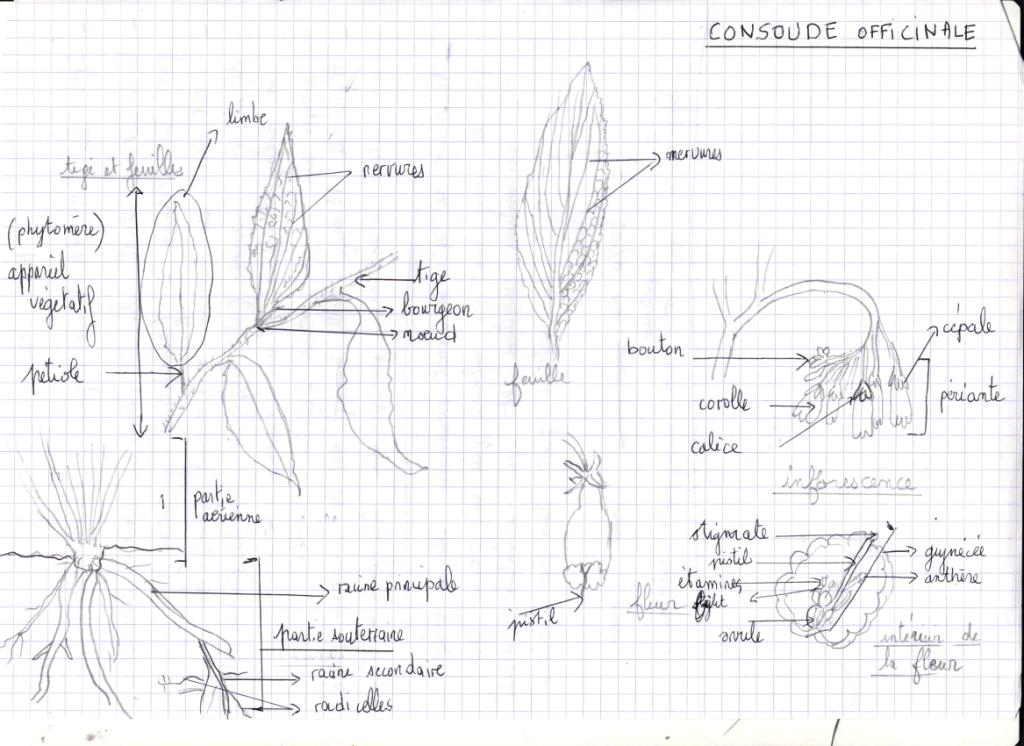 CONSOUDE OFFICINALE
limbe
tigi et feuilles
nervures
nervures
(phytomère)
appareil
végétatif
tige
bourgeon
noeud
pétiole
feuille
bouton
cépale
corolle
périante
calice
infforescence
partie
aérienne
racine principale
partie souterraine
racine secondaire
radicelles
pistil
fleur
stigmate
pistil
étamines
ovule
gynécée
anthère
intérieur de
la fleur